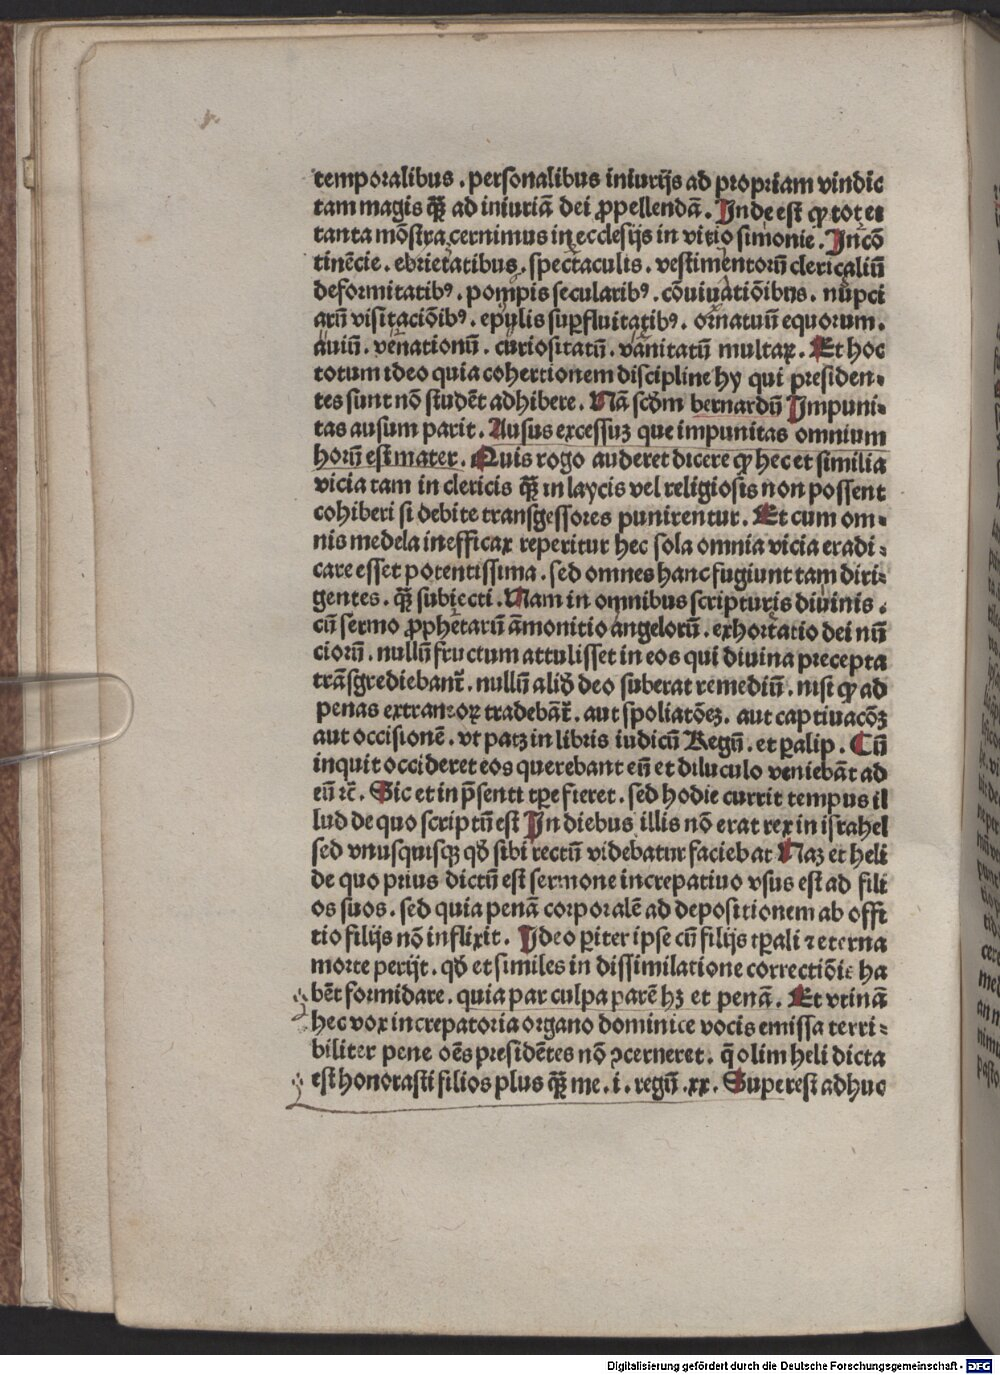 temporalibus . personalibus iniurijs ad propriam vindic
tam magis qȝ̄ ad iniuriā dei ꝓpellendā . Inde est ꝙ tot et
tanta mōstra cernimus in ecclesijs in vitio simonie . Incō
tinēcie . ebrietatibus . spectaculis . vestimentorū clericaliū
deformitatibꝰ . pompis secularibꝰ . cōuiuatiōibus . nupci
arū visitaciōibꝰ . epulis suꝑfluitatibꝰ . ornatuū equorum .
auiū . venationū . curiositatū . vanitatū multaꝝ . Et hoc
totum ideo quia cohertionem discipline hy qui presiden⸗
tes sunt nō studēt adhibere . Nā scḋm bernardū Impuni⸗
tas ausum parit . Ausus excessuȝ que impunitas omnium
horū est mater . Quis rogo auderet dicere ꝙ hec et similia
vicia tam in clericis qȝ̄ in laycis vel religiosis non possent
cohiberi si debite transgessores punirentur . Et cum om⸗
nis medela inefficax reperitur hec sola omnia vicia eradi⸗
care esset potentissima . sed omnes hanc fugiunt tam diri⸗
gentes . qȝ̄ subiecti . Nam in omnibus scripturis diuinis .
cū sermo ꝓphetarū āmonitio angelorū . exhortatio dei nū
ciorū . nullū fructum attulisset in eos qui diuina precepta
trāsgrediebant̄ . nullū aliḋ deo suberat remediū . nisi ꝙ ad
penas extraneoꝝ tradebāt̄ . aut spoliatōeȝ . aut captiuacōȝ
aut occisionē . vt patȝ in libris iudicū Regū . et ꝑalip . Cū
inquit occideret eos querebant eū et diluculo veniebāt ad
eū ⁊c̄ . Sic et in p̄senti tꝑe fieret . sed hodie currit tempus il
lud de quo scriptū est In diebus illis nō erat rex in israhel
sed vnusquisqȝ qḋ sibi rectū videbatur faciebat Naȝ et heli
de quo prius dictū est sermone increpatiuo vsus est ad fili
os suos . sed quia penā corporalē ad depositionem ab offi
tio filijs nō inflixit . Ideo ꝑiter ipse cū filijs tꝑali ⁊ eterna
morte perijt . qḋ et similes in dissimilatione correctiōis ha
bēt formidare . quia par culpa parē hȝ et penā . Et vtinā
hec vox increpatoria organo dominice vocis emissa terri⸗
biliter pene oēs presidētes nō ꝯcerneret . q̄ olim heli dicta
est honorasti filios plus qȝ̄ me . i . regū . xx . Superest adhuc
Digitalisierung gefördert durch die Deutsche Forschungsgemeinschaft - DFG